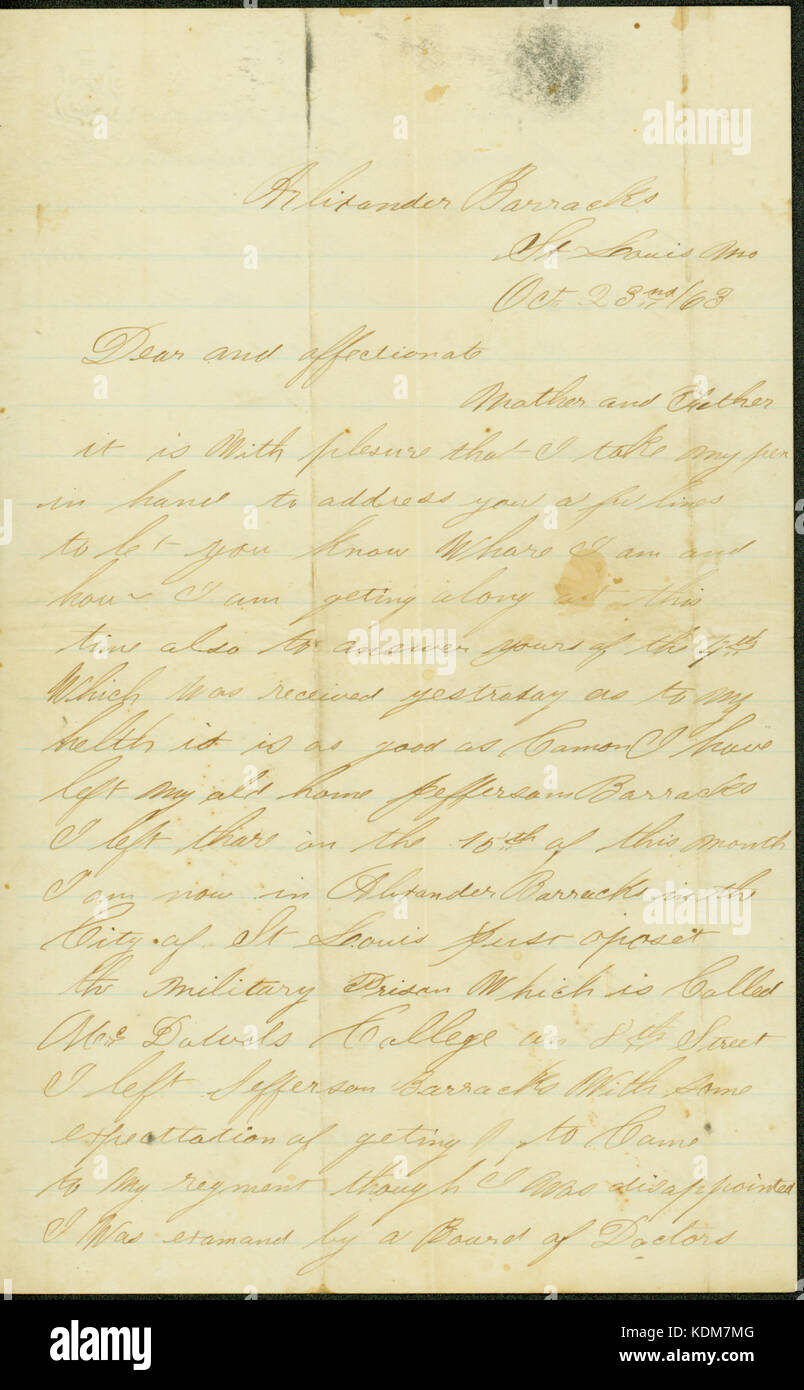 Alixander Barracks
St Louis Mo
Oct 23nd/63
Dear and affectionat
Mother and Father
it is With plesure that I take my pen
in hand to address you a fu lines
to let you know Whare I am and
how I am geting along at this
time also to answer yours of the 7th
Which Was received yestraday as to my
helth it is as good as Camon I have
left my old home Jefferson Barracks
I left thare on the 15th of this month
I am now in Alixander Barracks in the
City of St Louis Just oposet
the Military Prison Which is Called
Mc Dowels College on 8th Street
I left Jefferson Barracks With some
expectation of geting to Come
to my regment though I Was disappointed
I Was examand by a Board of Doctors
alamy
alamy
Image ID: KDM7MG
www.alamy.com